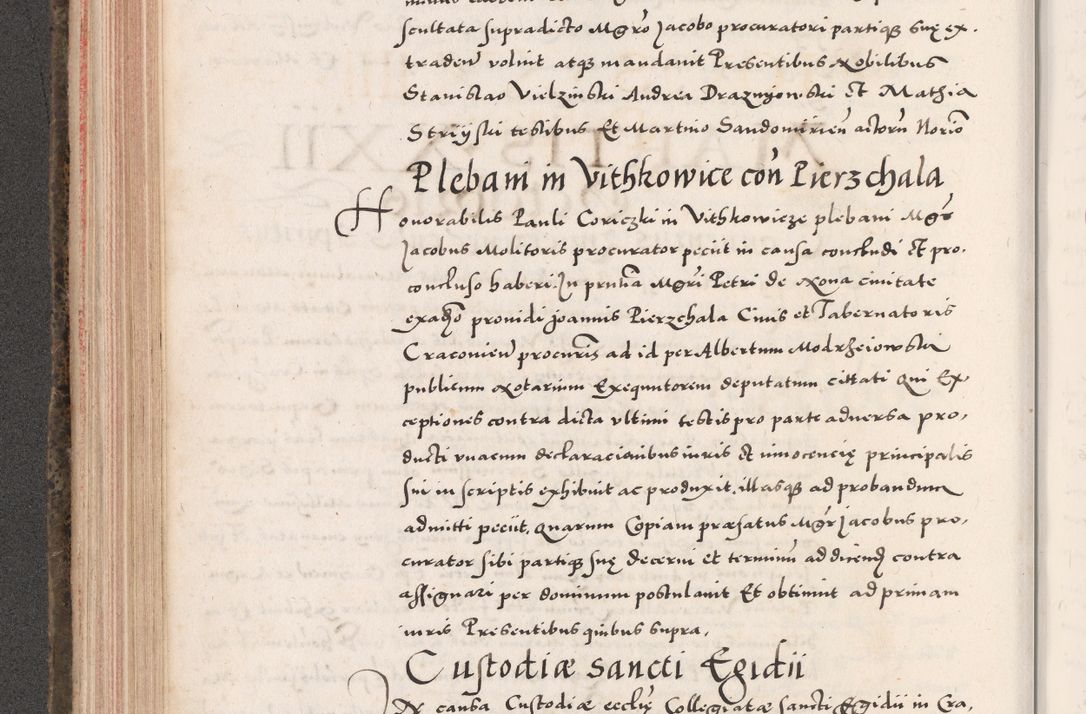 scultata supradicto Mgro Jacobo procuratori partiqz suę ex.
traden voluit atqz mandauit Presentibus Nobilibus
Stanislao Vielzinski Andrea Drazniowski et Mathia
Striyski testibus Et Martino Sandomirien actoru Norio
Plebani in Vithkowice con Pierzchala
Honorabilis Pauli Coriczki in Vithkowicze plebani Mgr
Jacobus Molitoris procurator peciit in causa concludi et pro.
concluso haberi. In pruia Mgri Petri de Nona ciuitate
prouidi Joannis Pierzchala Ciuis et Tabernatoris
Cracouien procuris ad id per Albertum Modrzeiowski
publicum Notarium Exequutorem deputatum cittati Qui Ex
ceptiones contra dicta vltimi testis pro parte aduersa pro,
ducti vnacum declaracionibus iuris et innocencię principalis
sui in scriptis exhibuit ac produxit, illasqz ad probandum
admitti peciit, Quarum Copiam præfatus Mgr Jacobus pro,
curator sibi partiqz suę decerni et terminu ad dicend contra
assignari per dominum postulauit Et obtinuit ad primam
iuris Presentibus quibus supra,
Custodiæ sancti Egidii
Ex causa Custodiæ ecclię Collegiatæ sancti Egidii in Cra,